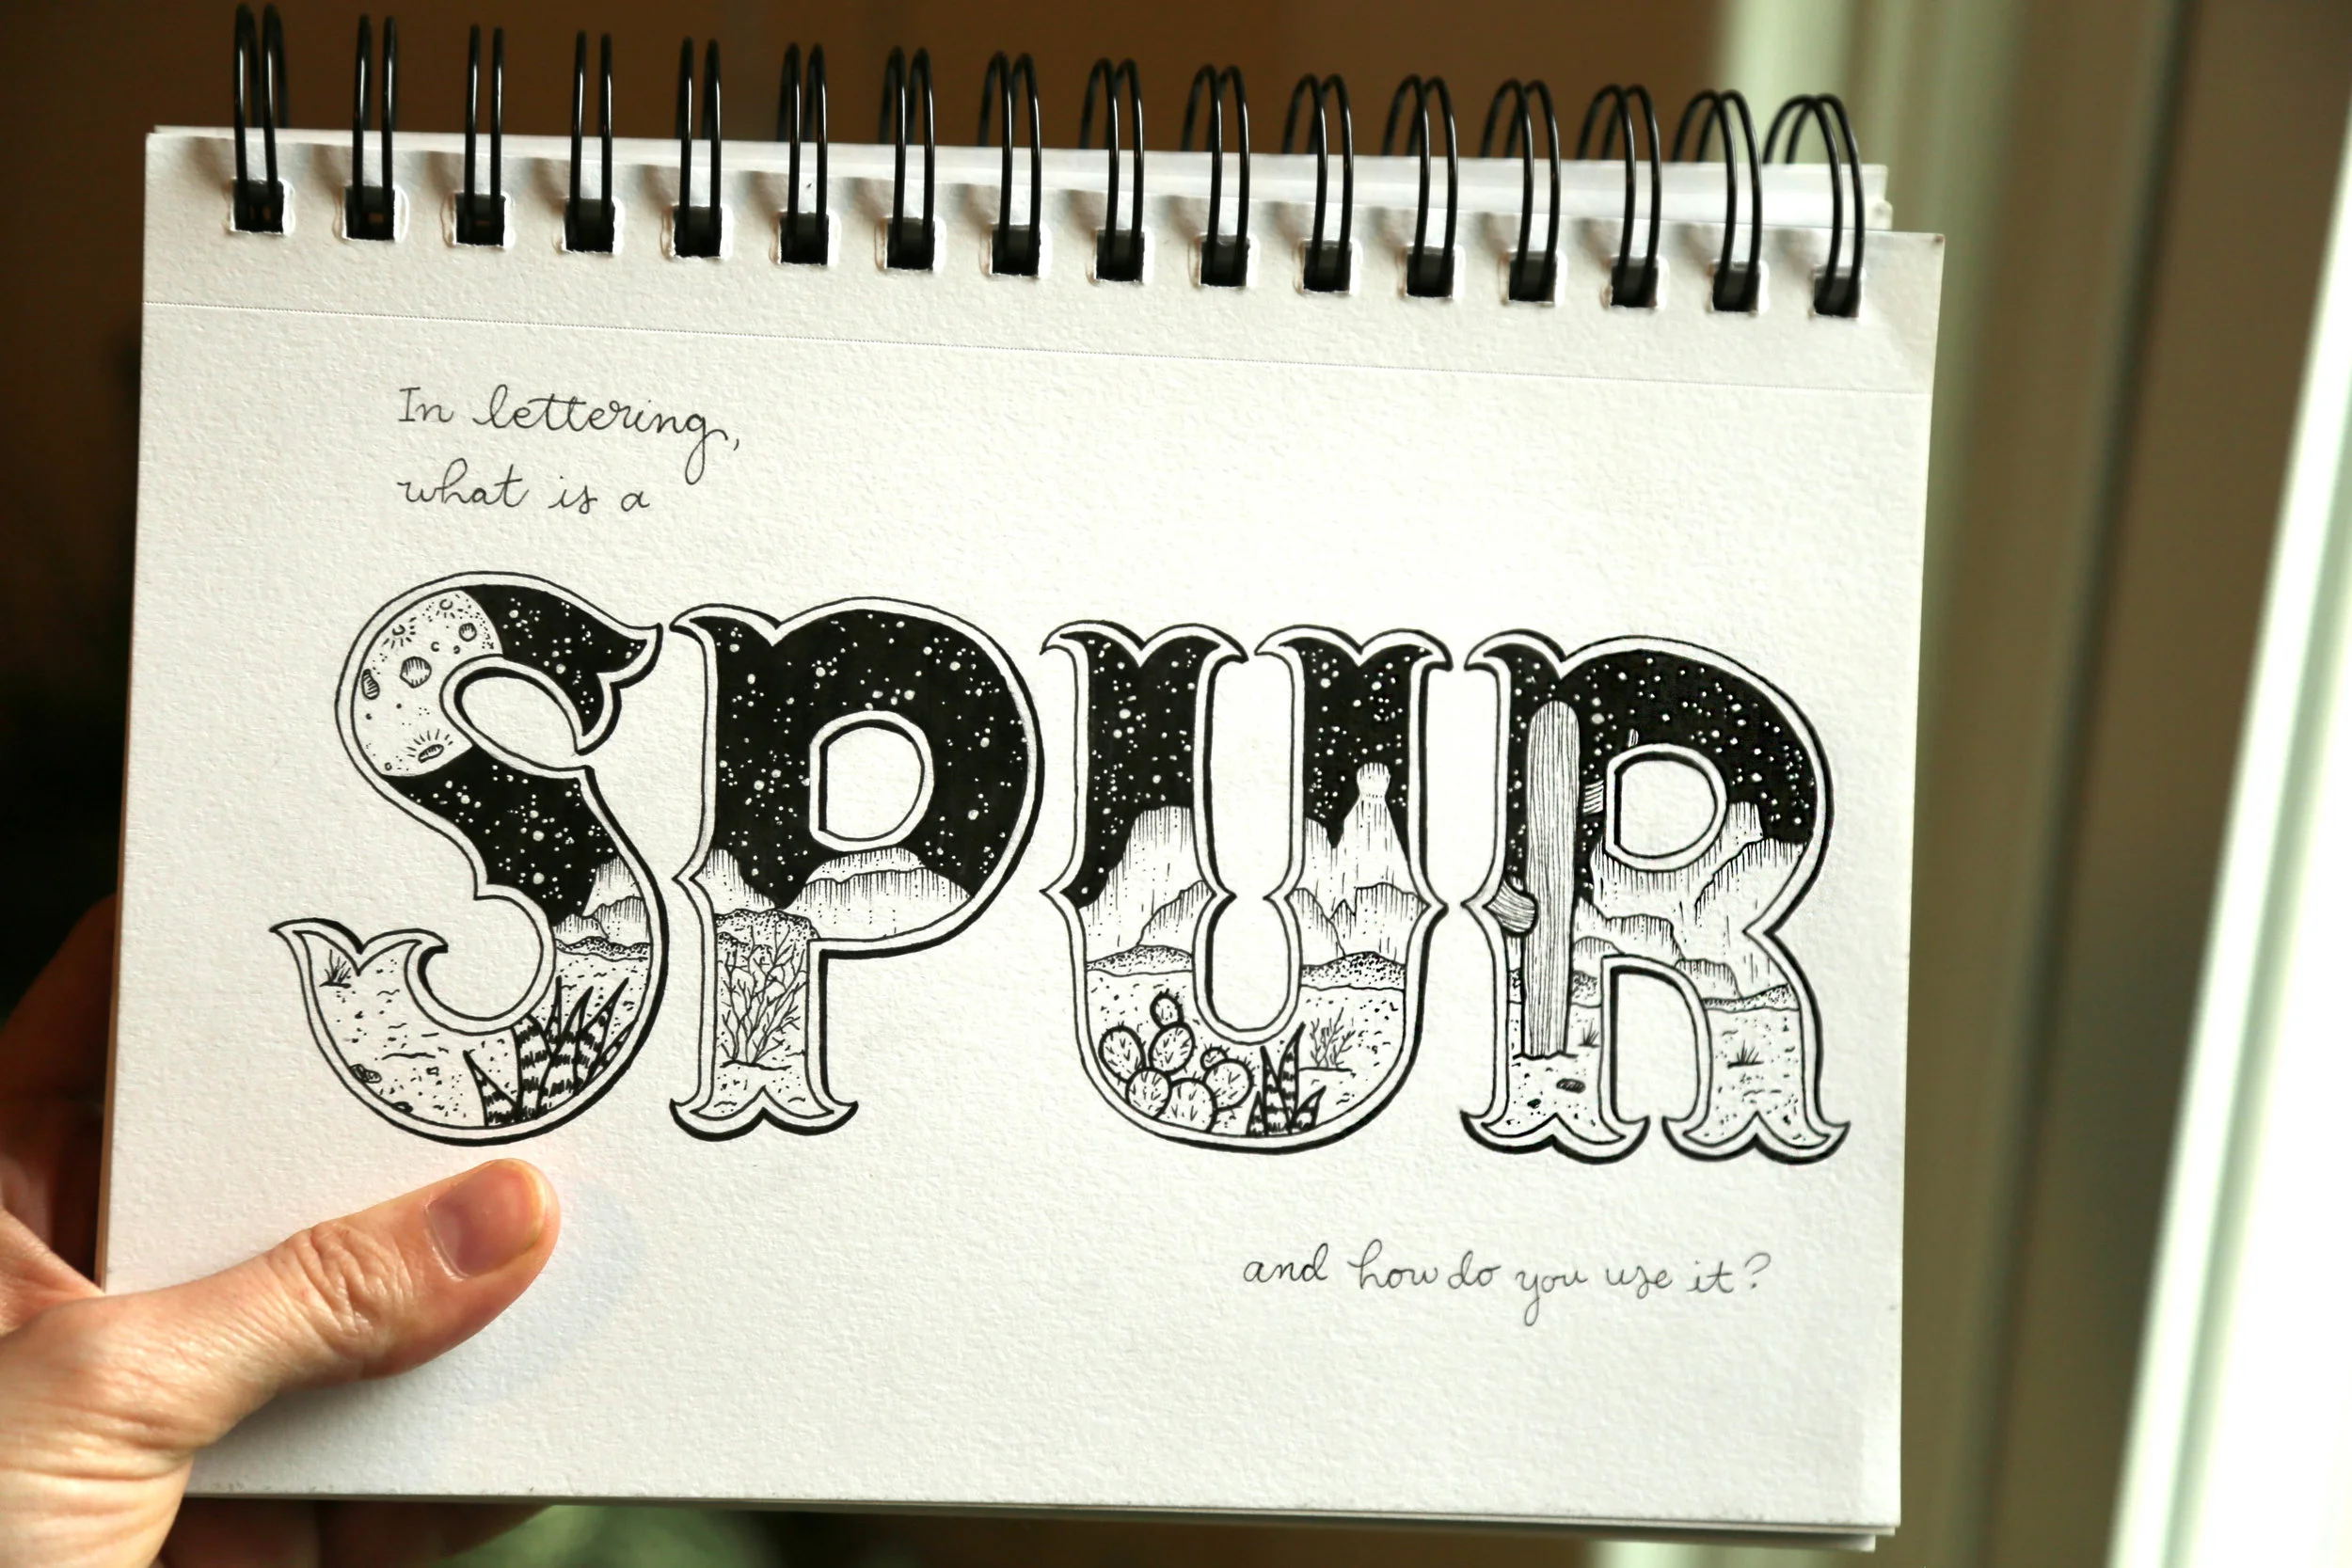 In lettering,
what is a
SPUR
and how do you use it?